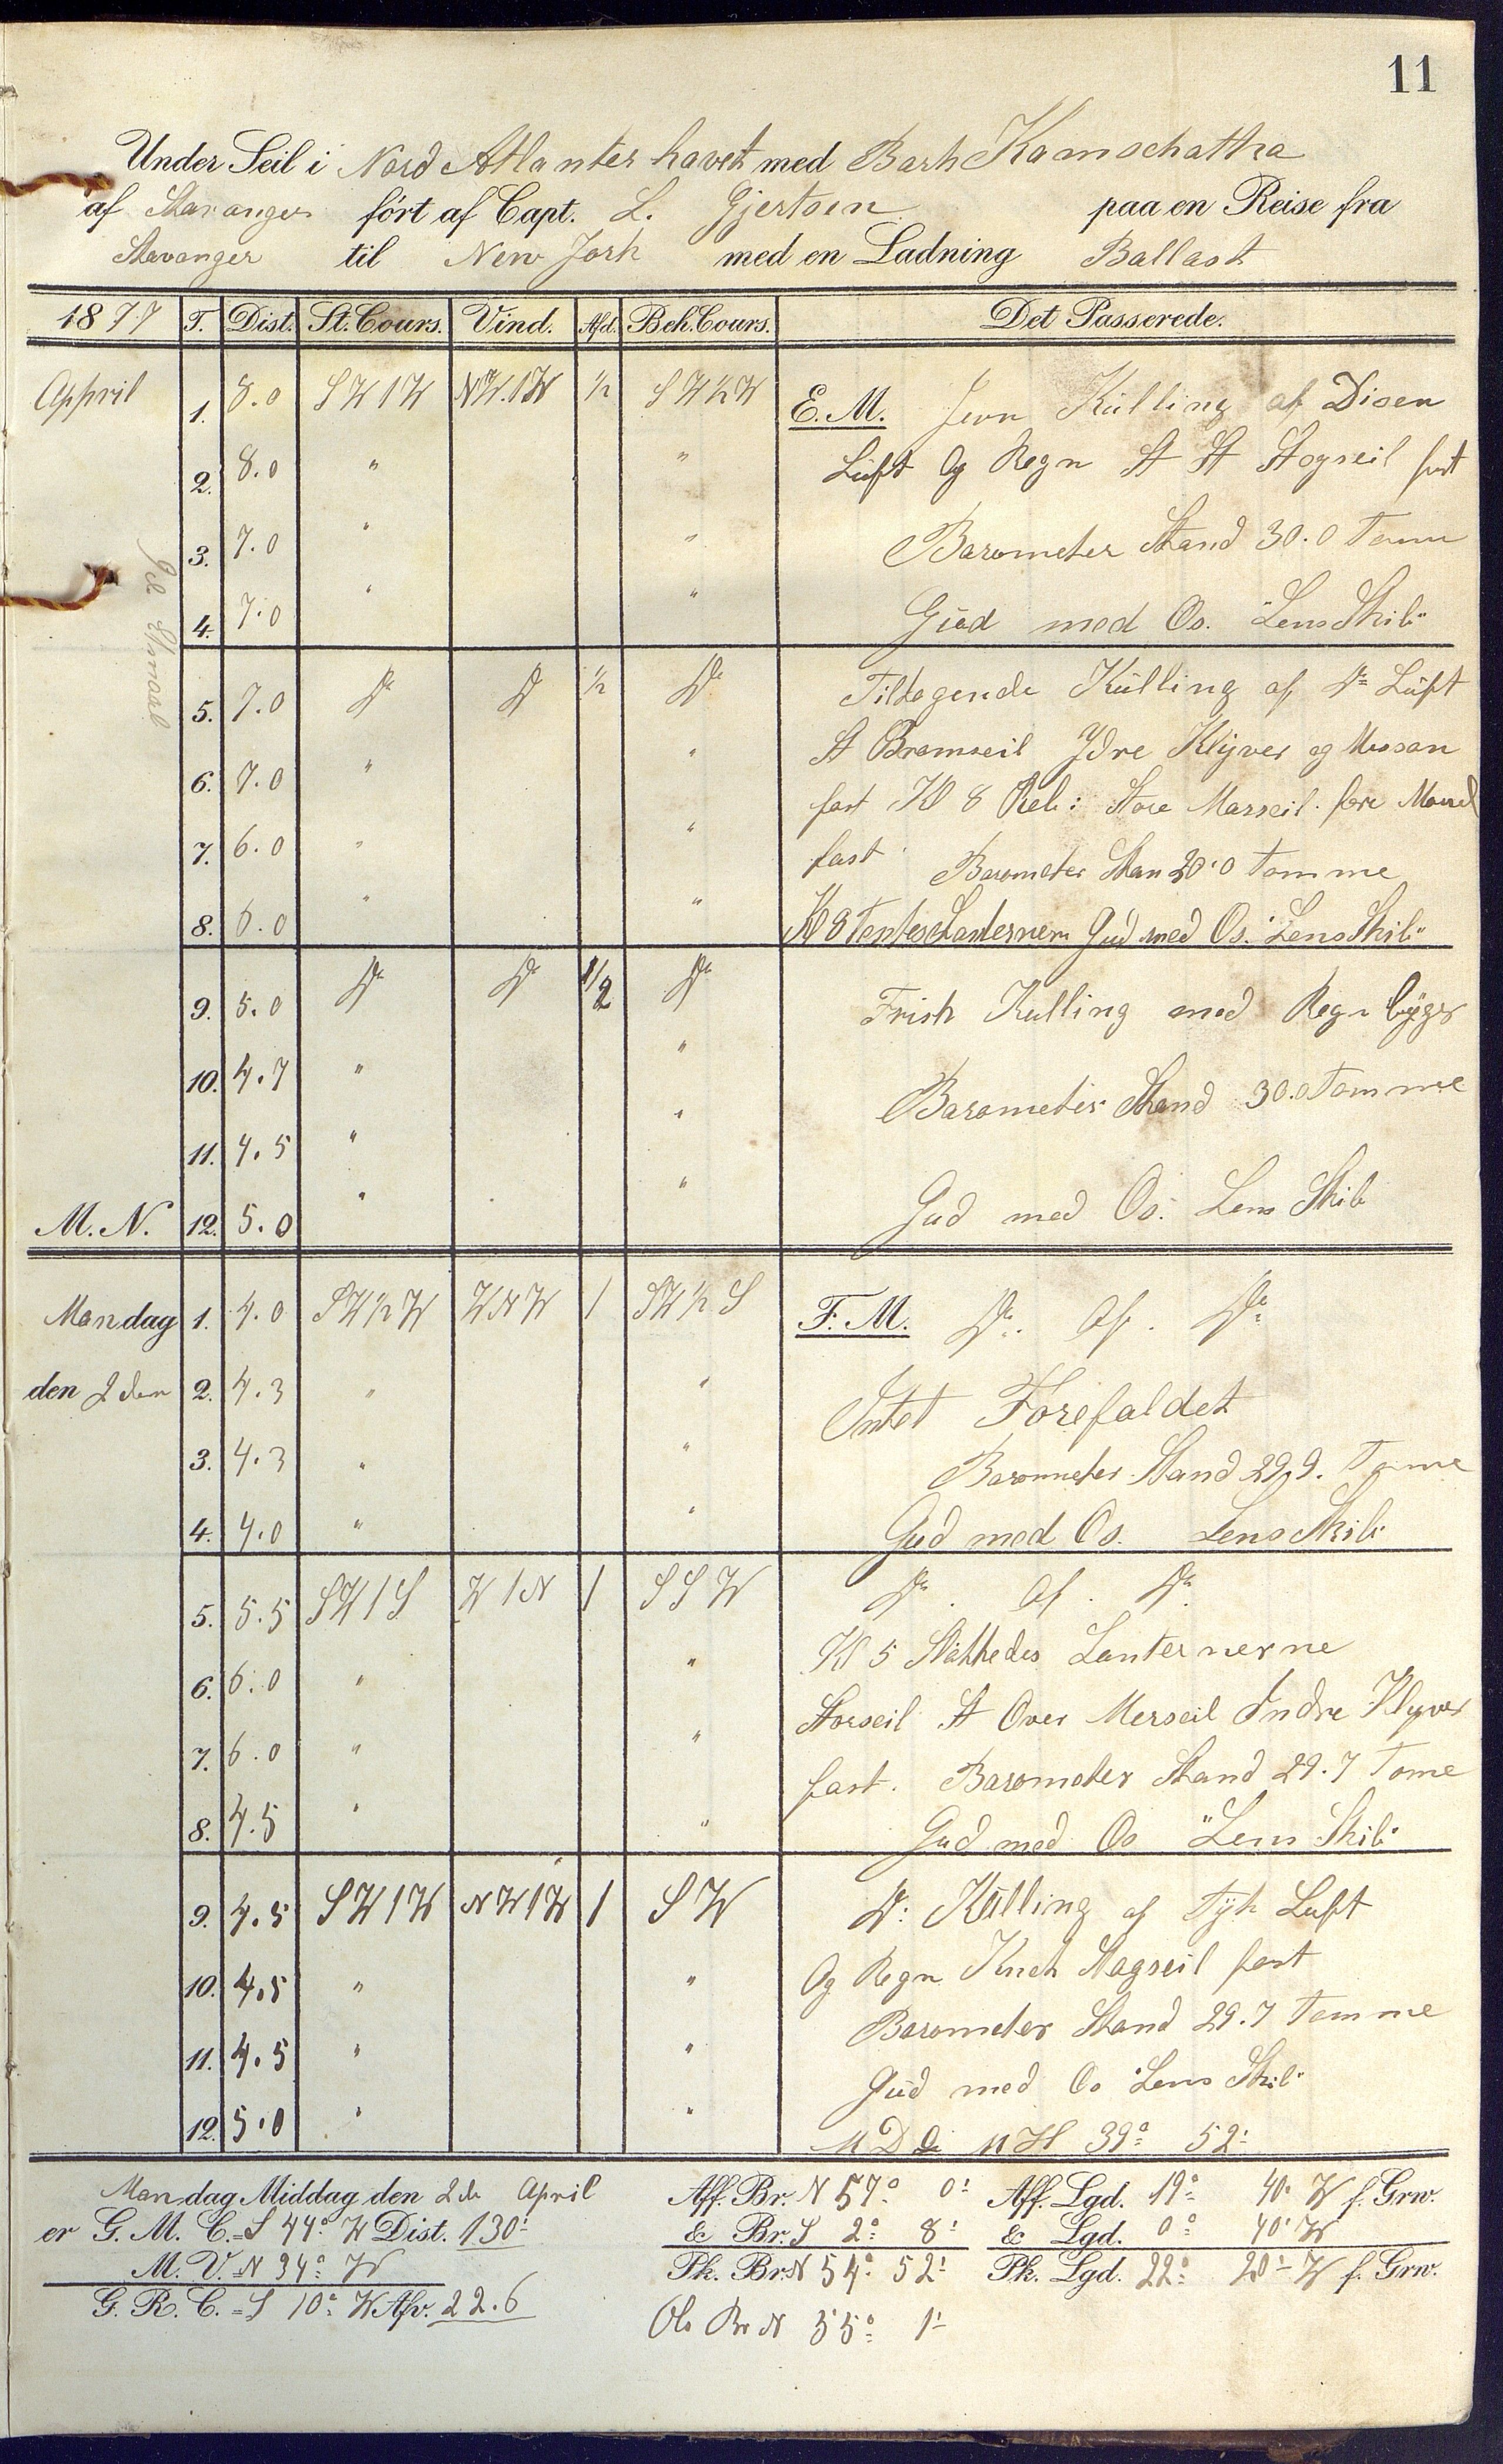 11
Under Seil i Nord Atlanter havet med Bark Kamschatka
af Stavanger ført af Capt. L. Gjertsen paa en Reise fra
Stavanger til New York med en Ladning Ballast
1877 T. Dist. St. Cours. Vind. Afd. Beh. Cours. Det Passerede.
April 1. 8.0 SW1W NW.1W ½ SW½W E. M. Jevn Külling af Disen
2. 8.0 " " Lüft Og Regn St St Stagseil fast
3. 7.0 " " Barometer Stand 30.0 Tomm
4. 7.0 " " Güd med Os. "Lens Skib"
5. 7.0 Do Do ½ Do Tiltagende Külling af Do Lüft
St Bramseil Ydre Klyver og Messan
6. 7.0 " "
fast Kl 8 Reb: Store Marsseil. fore
7. 6.0 " " fast Barometer Stan 30.0 Tomme
8. 6.0 " " Kl 8 Tentes Lanternern Gud med Os. "Lens Skib"
9. 5.0 Do Do 1/2 Do Frisk Kulling med Regn bÿger
10. 4.7 " "
11. 4.5 " " Barometer Stand 30.0 Tomme
M. N. 12. 5.0 " " Gud med Os. Lens Skib
Mandag 1. 4.0 SW½W WNW 1 SW½S F. M. Do. Af. Do
den 2den 2. 4.3 " " Intet Forefaldet
3. 4.3 " " Barometer Stand 29.9. Tomme
4. 4.0 " " Gud med Os. Lens Skib"
5. 5.5 SW1S W1N 1 SSW Do. Af. Do.
Kl 5 Slukkedes Lanternerne
6. 6.0 " "
Storseil St Over Merseil Indre Klyver
7. 6.0 " "
fast. Barometer Stand 29.7 Tome
8. 4.5 " " Gud med Os "Lens Skib"
9. 4.5 SW1W NW1W 1 SW Do: Külling af Tÿk Luft
10. 4.5 " " Og Regn Stagseil fast
Barometer Stand 29.7 Tomme
11. 4.5 " " Gud med Os "Lens Skib"
12. 5.0 " " M H 39° 52'
Mandag Middag den 2de April Aff. Br. N 57° 0' Aff. Lgd. 19° 40' W f. Grw.
er G. M. C.=S 44° W Dist. 130' & Br. S 2° 8' & Lgd. 0° 40' W
M. V.=N 34° W Pk. Br. N 54° 52' Pk. Lgd. 22° 20' W f. Grw.
G. R. C.=S 10° W Afv. 22.6 Obs Br N 55° 1'